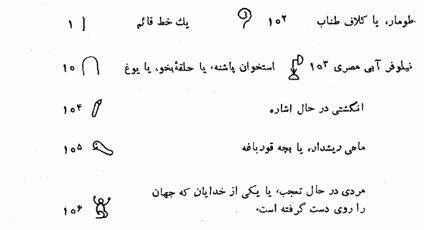 طومار، یا کلاف طناب ۱۰۲ یك خط قائم ۱
نیلوفر آبی مصری ۱۰۳ استخوان پاشنه، یا حلقهٔ بخو، یا یوغ ۱۰
انگشتی در حال اشاره ۱۰۴
ماهی ریشدار، یا بچه قورباغه ۱۰۵
مردی در حال تعجب، یا یکی از خدایان که جهان
را روی دست گرفته است. ۱۰۶